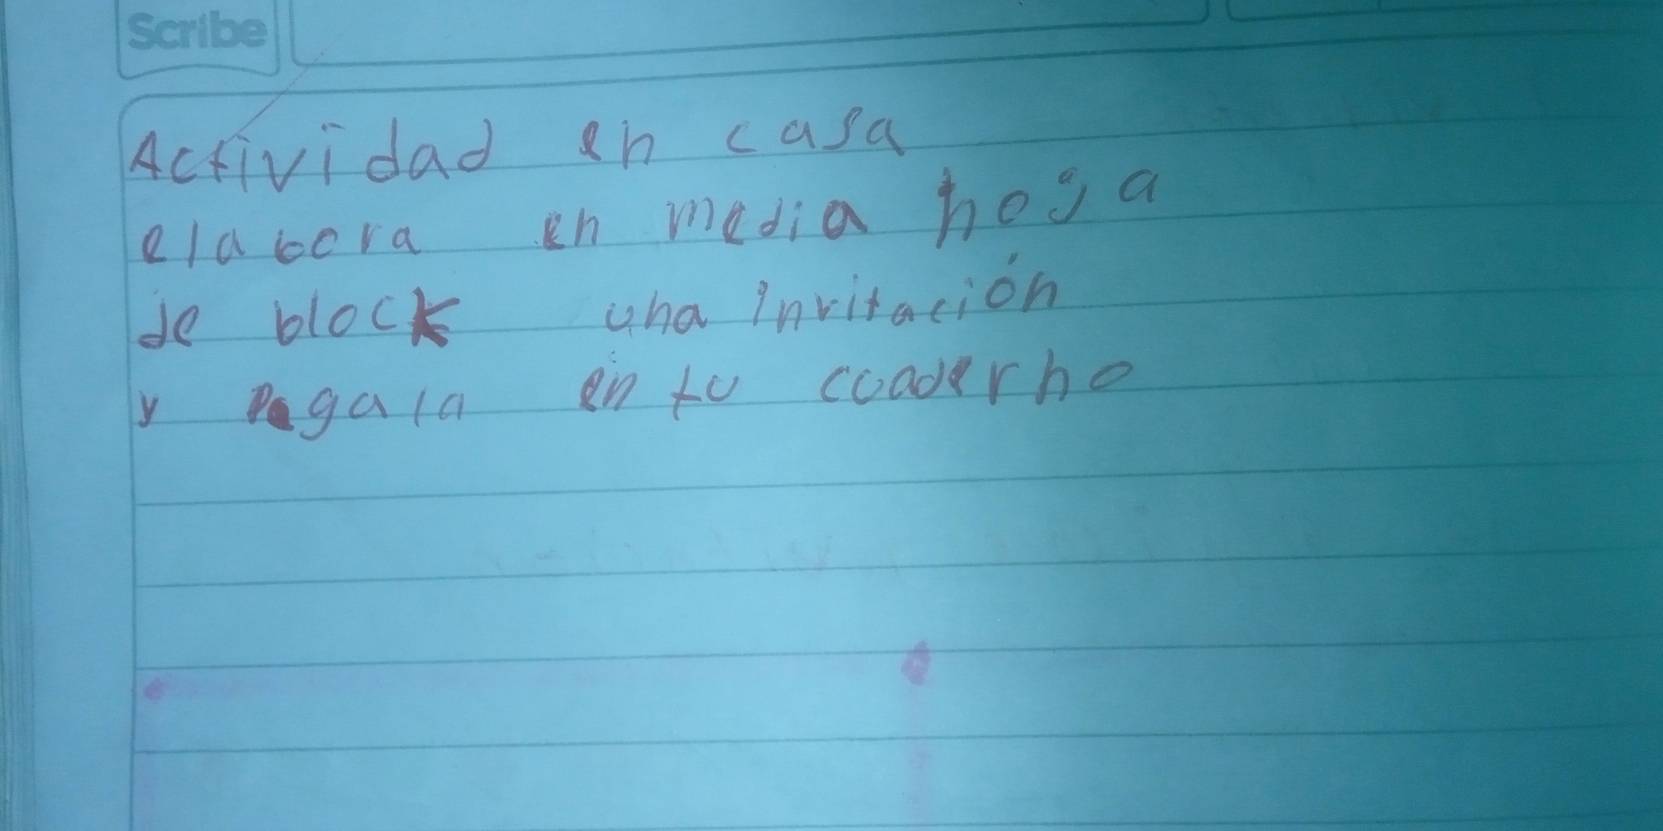 Scribe
Actividad en casa
elabora en media hoja
de block una invitación
y pegala en tu cuaderno